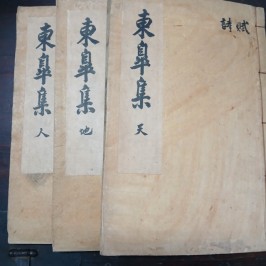 賦詩
東皐集
天
東皐集
地
東皐集
人